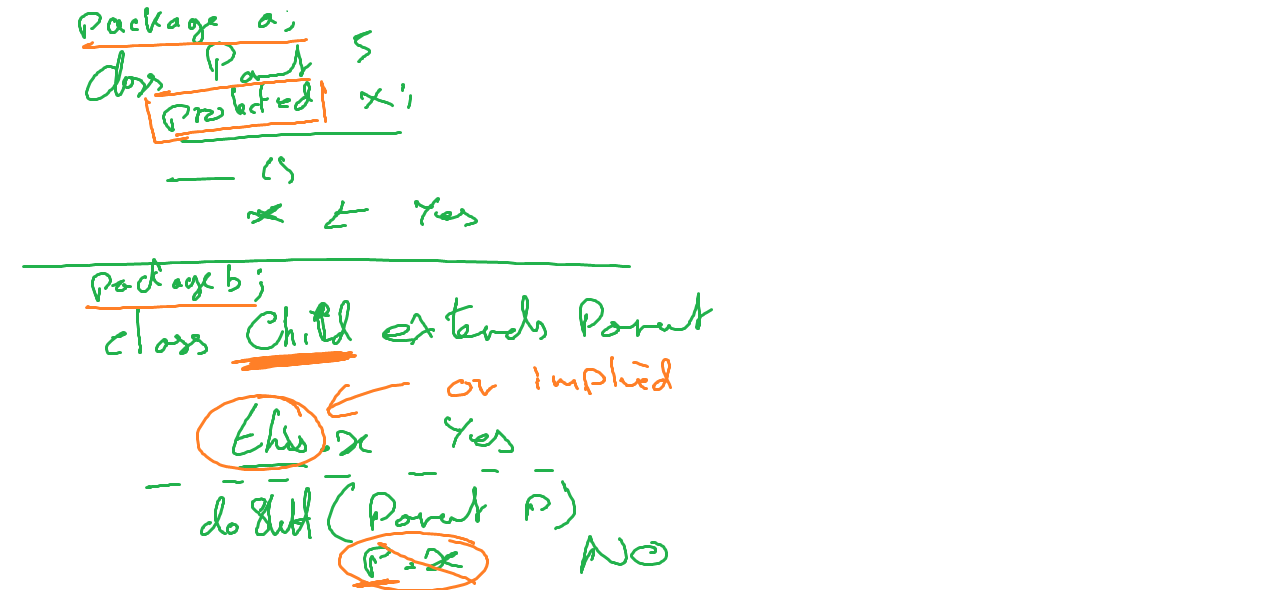 package a;
class Parent {
protected x;
()
x ← Yes
package b;
class Child extends Parent
or implied
this.x Yes
do Stuff (Parent P)
P.x NO